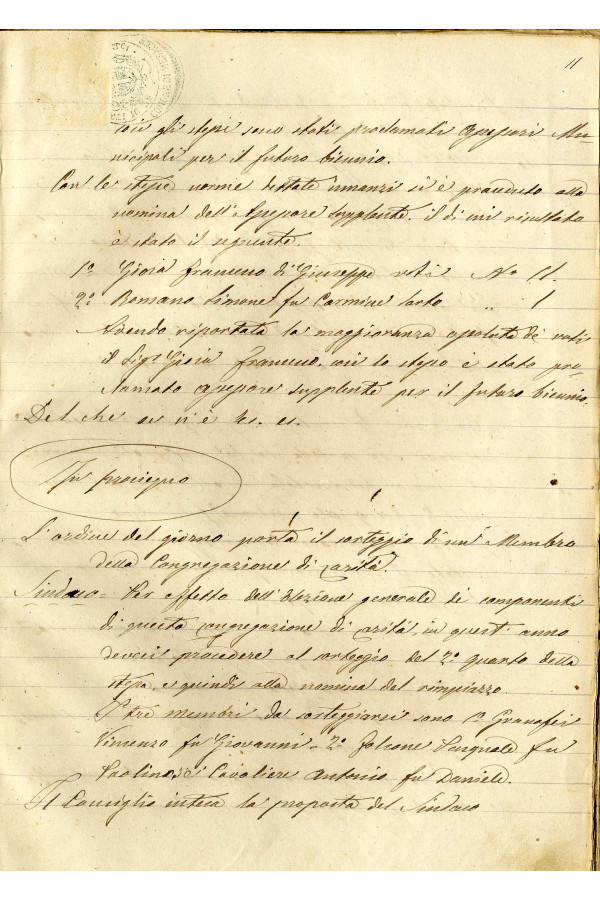 11
così gli stessi sono stati proclamati assessori Mu-
nicipali per il futuro biennio.
Con le stesse norme dettate innanzi si è proceduto alla
nomina dell'Assessore supplente, il di cui risultato
è stato il seguente.
1º Gioia Francesco di Giuseppe voti Nº 11.
2º Romano Simone fu Carmine voto " 1
Avendo riportata la maggioranza assoluta de' voti
il Sigr Gioia Francesco, così lo stesso è stato pro-
clamato assessore supplente per il futuro biennio.
Del che se n'è
In prosieguo
L'ordine del giorno porta il sorteggio di un Membro
della Congregazione di Carità.
Sindaco - Per effetto dell'Elezione generale de' componenti
di questa Congregazione di Carità, in quest'anno
devesi procedere al sorteggio del 2º quarto della
stessa, e quindi alla nomina del rimpiazzo.
I tre membri da sorteggiarsi sono 1º
Vincenzo fu Giovanni - 2º Falcone Pasquale fu
Paolino, 3º Cavaliere Antonio fu Daniele.
Il Consiglio intesa la proposta del Sindaco